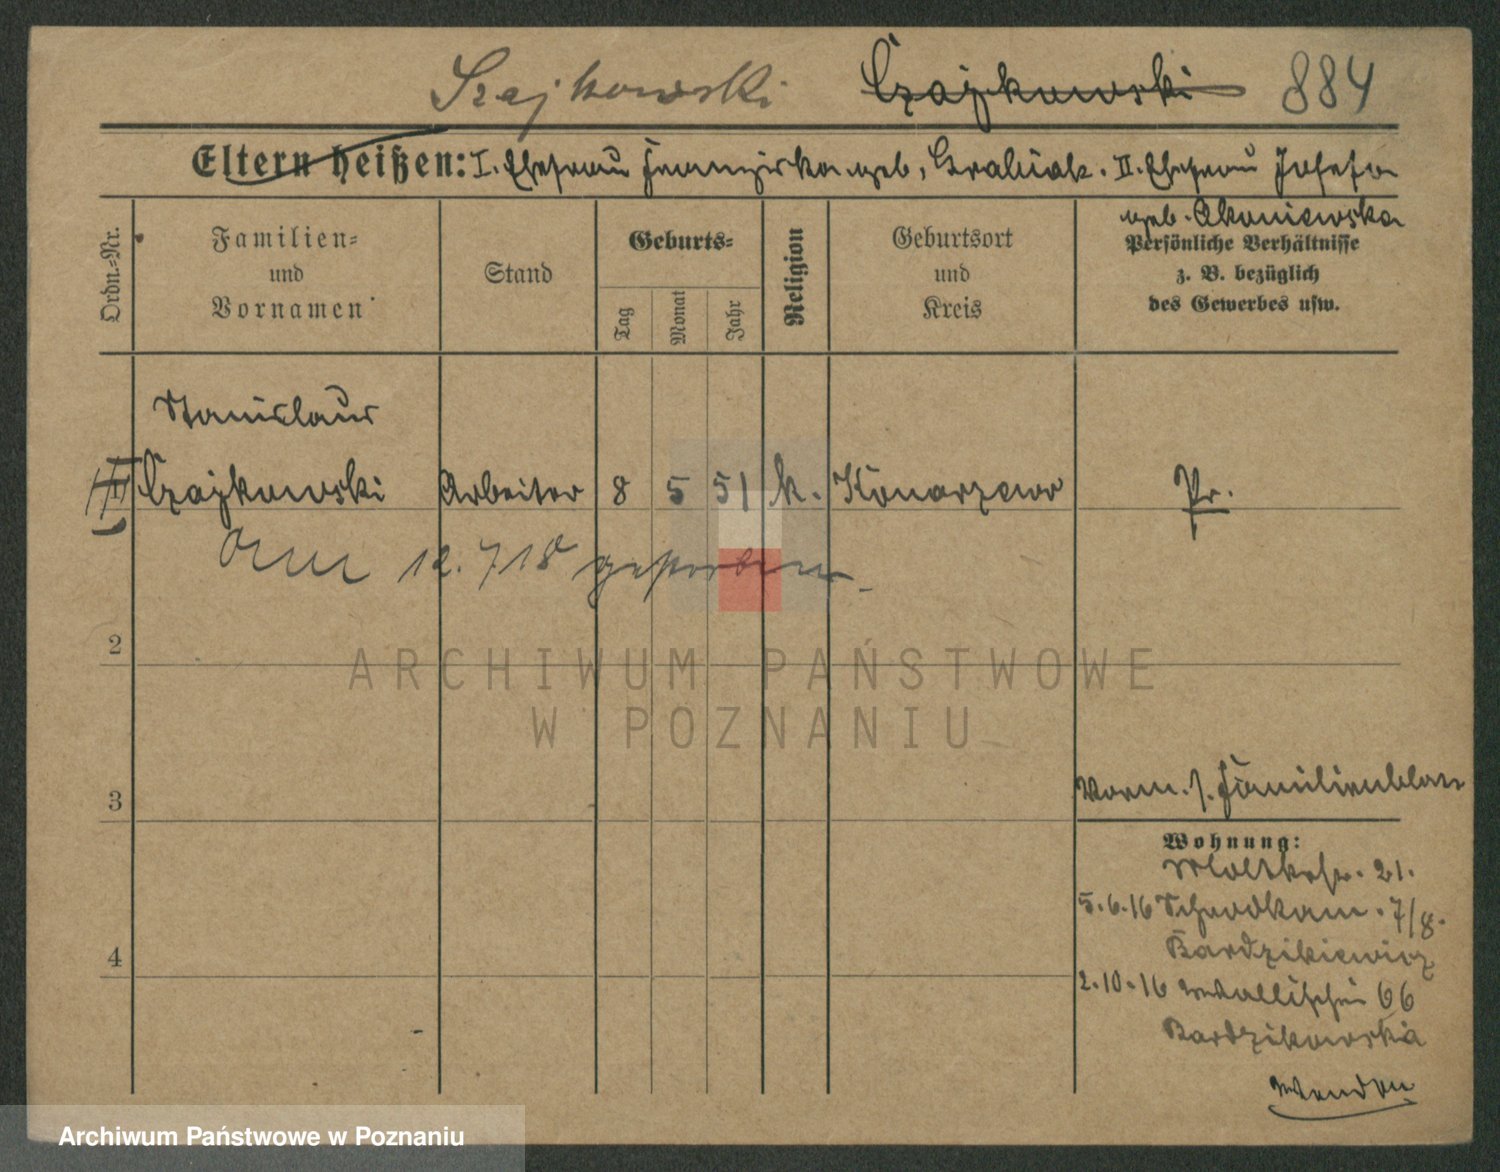 Szajkowski Czajkowski 884
Eltern heißen: I. Ehefrau Franziska geb. Graluak. II. Ehefrau Josefa
geb. Akoniewska
Ordn.-Nr.
Familien-
und
Vornamen
Stand
Geburts-
Tag
Monat
Jahr
Religion
Geburtsort
und
Kreis
Persönliche Verhältnisse
z. B. bezüglich
des Gewerbes usw.
Stanislaus
Czajkowski Arbeiter 8 5 51 k. Konarzewo Pr.
Am 12.7 18 gestorben.
2
ARCHIWUM PAŃSTWOWE
W POZNANIU
Vorm. s. Familienblatt
3
Wohnung:
Moltkestr. 21.
5.6.16 Schrodkam. 7/8.
Bardzikiewicz
4
2.10.16 Wallischei 66
Bardzikowska
Wenden
Archiwum Państwowe w Poznaniu